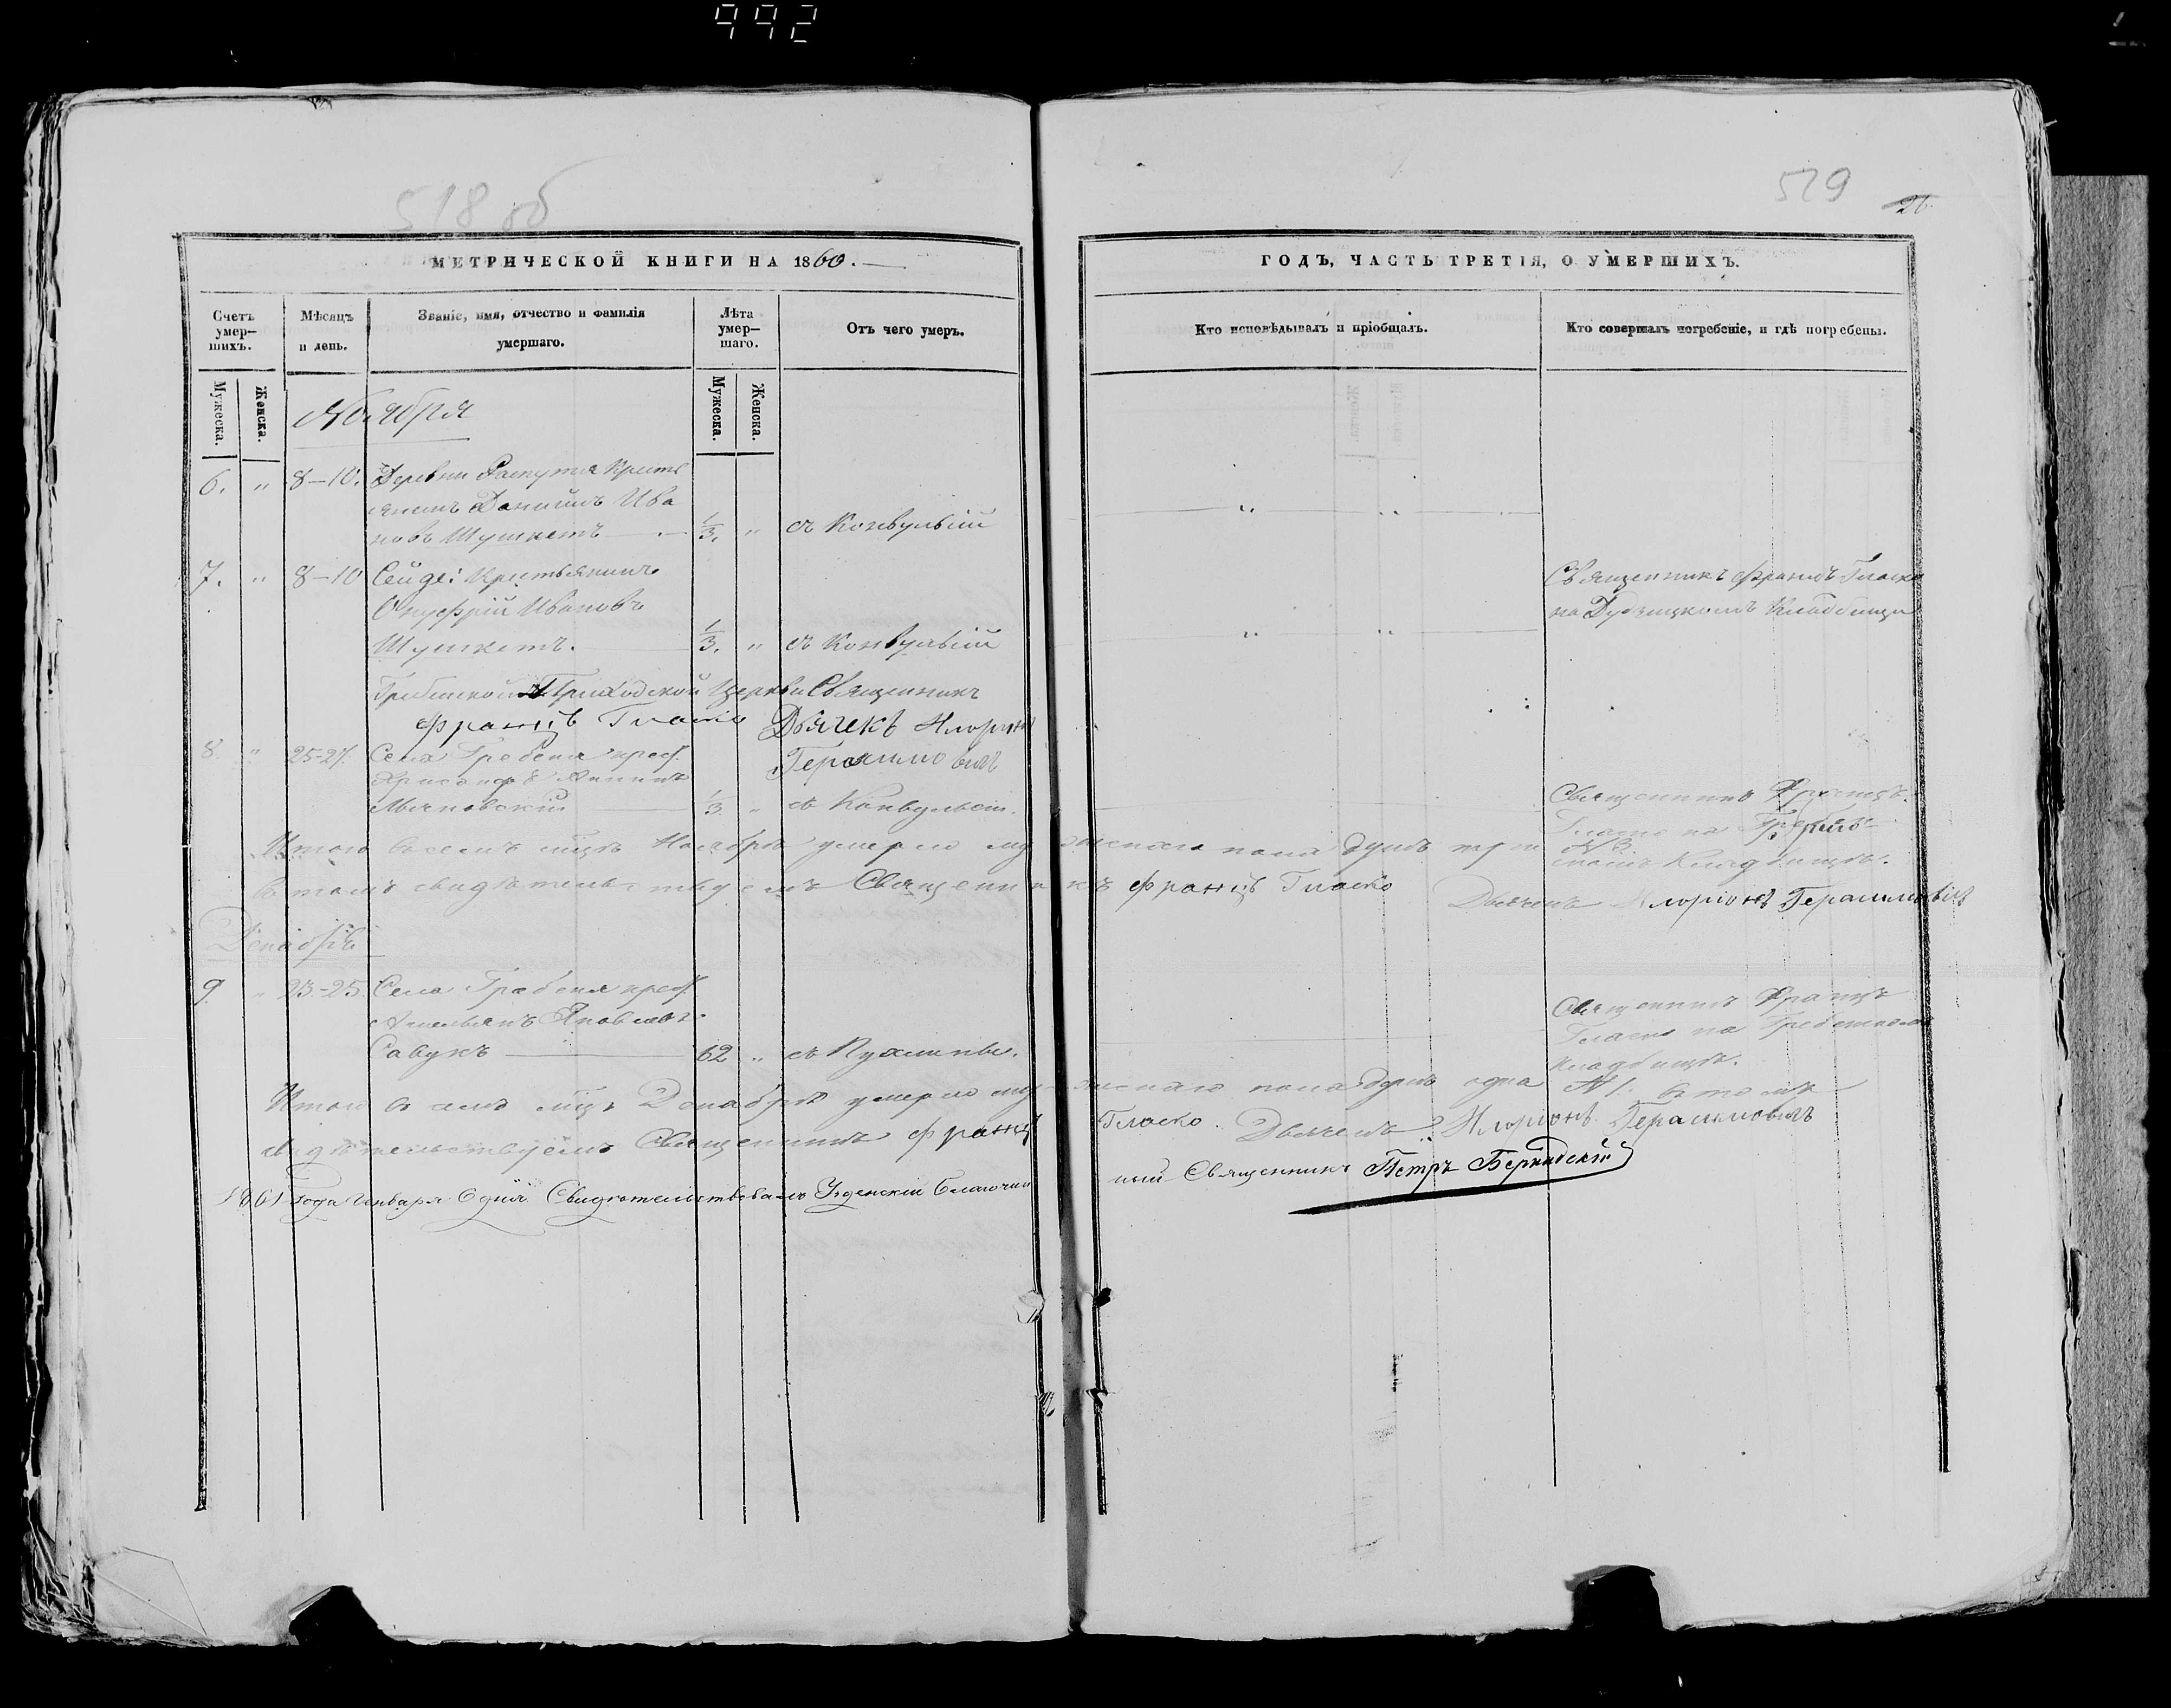 992
518 об
519
26.
МЕТРИЧЕСКОЙ КНИГИ НА 1860.
ГОДЪ, ЧАСТЬ ТРЕТІЯ, О УМЕРШИХЪ.
Счетъ умер-шихъ.
Мѣсяцъ и день.
Званіе, имя, отчество и фамилія умершаго.
Лѣта умер-шаго.
Отъ чего умеръ.
Кто исповѣдывалъ и пріобщалъ.
Кто совершалъ погребеніе, и гдѣ погребены.
Мужеска.
Женска.
Мужеска.
Женска.
Ноября
6. " 8–10. Деревни Кресть
янинъ Даніилъ Ива
новъ Шушкетъ 1/3. " съ Конвульсій
7. " 8–10 Крестьянинъ
Онуфрій Ивановъ
Шушкетъ. 1/3. " съ Конвульсій
Священникъ Францъ Гласко
на Кладбищѣ
Приходской Церкви Священникъ
Францъ Гласко Дьячекъ Иларіонъ
Герасимовичъ
8 " 25-27. Села Гребеня крест.
Мяновскій 1/3. " съ Конвульсій.
Священникъ Францъ
Гласко на
Кладбищѣ.
Итого всего въ мцѣ Ноябрѣ умерло мужескаго пола душъ три № 3
въ томъ свидѣтельствуемъ Священникъ Францъ Гласко Дьячекъ Иларіонъ Герасимовичъ
Декабрь
9 " 23-25. Села Гребеня крест.
Яковлевъ
Савукъ 62 " съ Пухлины.
Священникъ Францъ
Гласко на Гребенскомъ
кладбищѣ.
Итого въ мцѣ Декабрѣ умерло мужескаго пола душъ одна № 1. въ томъ
свидѣтельствуемъ Священникъ Францъ Гласко. Дьячекъ Иларіонъ Герасимовичъ
1861 Года Января 6 дня Свидѣтельствовалъ Узденскій Благочин
ный Священникъ Петръ